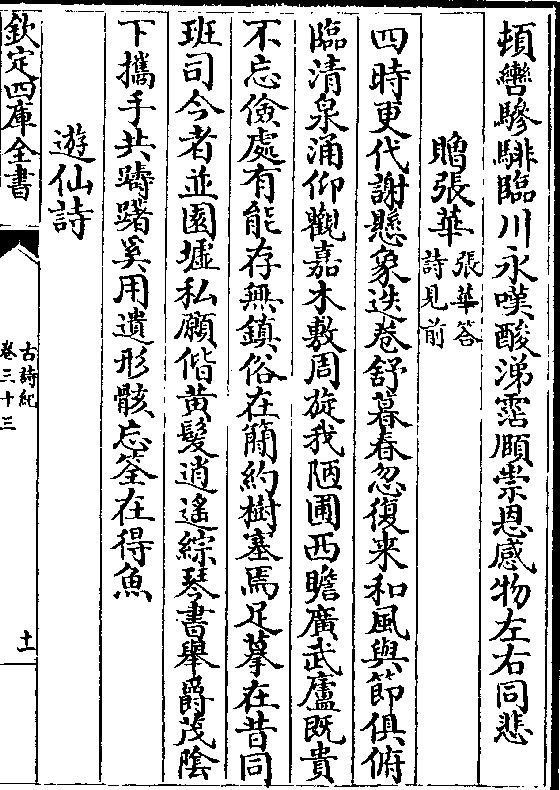 頓轡驂騑臨川永嘆酸涕霑頤崇恩感物左右同悲
贈張華張華答詩見前
四時更代謝懸象迭卷舒暮春忽復来和風與節俱俯
臨清泉涌仰觀嘉木敷周旋我陋圃西瞻廣武廬既貴
不忘儉處有能存無鎮俗在簡約樹塞焉足摹在昔同
班司今者並園墟私願偕黄髮逍遙綜琴書舉爵茂陰
下攜手共躊躇奚用遺形骸忘筌在得魚
遊仙詩
欽定四庫全書
古詩紀
卷三十三
十一